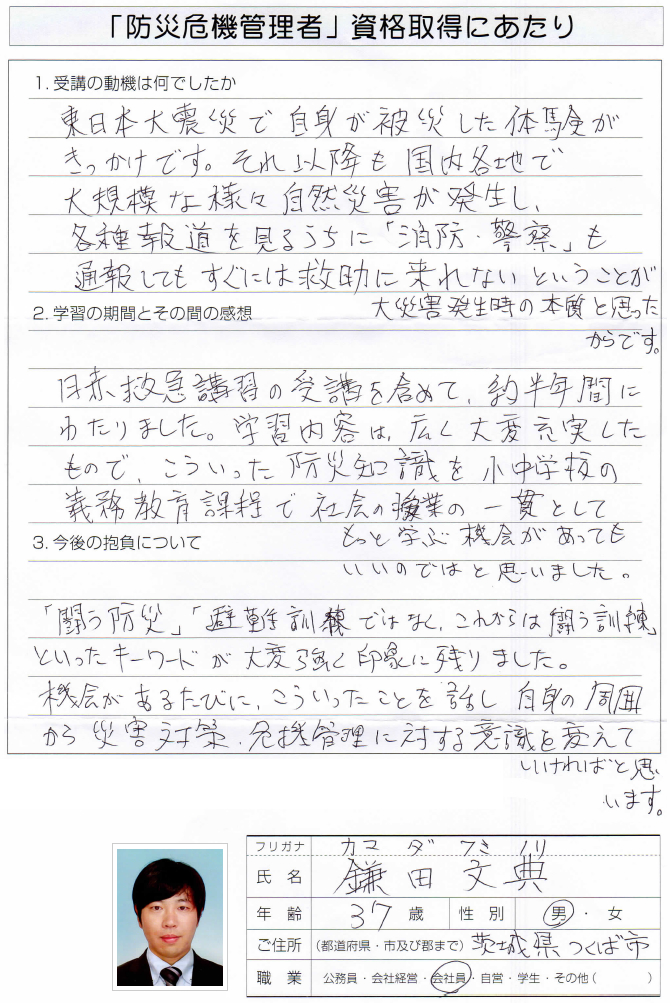 「防災危機管理者」資格取得にあたり
1. 受講の動機は何でしたか
東日本大震災で自身が被災した体験が
きっかけです。それ以降も国内各地で
大規模な様々自然災害が発生し、
各種報道を見るうちに「消防・警察」も
通報してもすぐには救助に来れないということが
大災害発生時の本質と思った
からです。
2. 学習の期間とその間の感想
日赤救急講習の受講を含めて、約半年間に
わたりました。学習内容は、広く大変充実した
もので、こういった防災知識を小中学校の
義務教育課程で社会の授業の一貫として
もっと学ぶ機会があっても
いいのではと思いました。
3. 今後の抱負について
「闘う防災」「避難訓練ではなく、これからは闘う訓練」
といったキーワードが大変強く印象に残りました。
機会があるたびに、こういったことを話し自身の周囲
から災害対策・危機管理に対する意識を変えて
いければと思
います。
フリガナ カマダ フミノリ
氏名 鎌田文典
年齢 37歳 性別 男・女
ご住所 (都道府県・市及び郡まで) 茨城県つくば市
職業 公務員・会社経営・会社員・自営・学生・その他( )